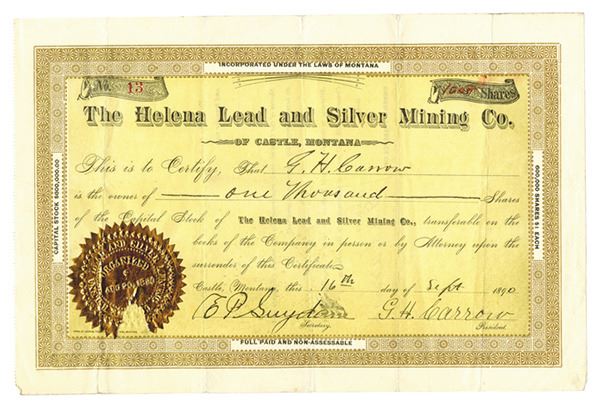 INCORPORATED UNDER THE LAWS OF MONTANA
No. 13
1000 Shares
The Helena Lead and Silver Mining Co.
OF CASTLE, MONTANA
This is to Certify, That G. H. Carrow
is the owner of one Thousand Shares
of the Capital Stock of The Helena Lead and Silver Mining Co., transferable on the
books of the Company in person or by Attorney upon the
surrender of this Certificate
Castle, Montana, this 16th day of Sept 1890
E P Suydam
Secretary.
G. H. Carrow
President.
FULL PAID AND NON-ASSESSABLE
CAPITAL STOCK $600,000.00
600,000 SHARES $1 EACH
LEAD AND SILVER
ORGANIZED
1890